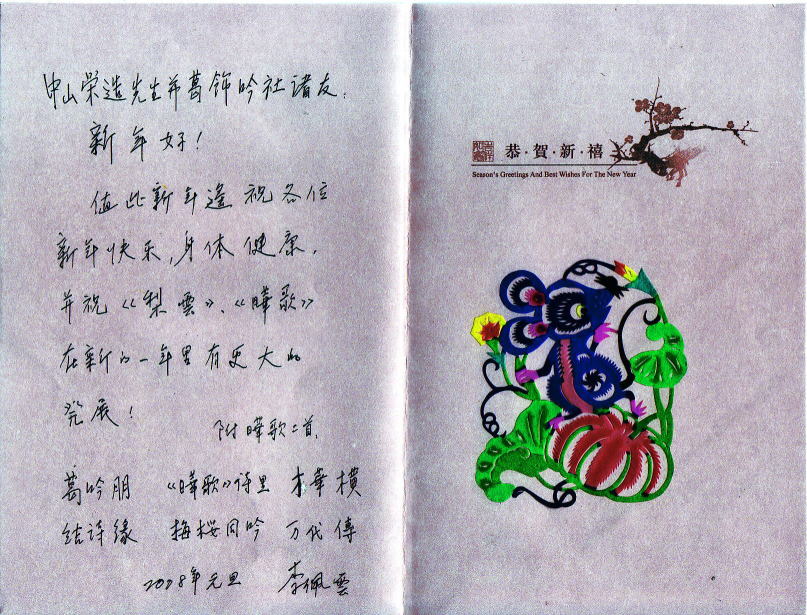 中山荣造先生并葛飾吟社诸友:
新年好!
值此新年遥祝各位
新年快乐,身体健康,
并祝《梨雲》、《曄歌》
在新的一年里有更大的
発展!
附曄歌二首,
葛吟朋 《曄歌》诗里 才華横
结诗缘 梅桜同吟 万代傳
2008年元旦 李佩雲
恭·賀·新·禧
Season's Greetings And Best Wishes For The New Year